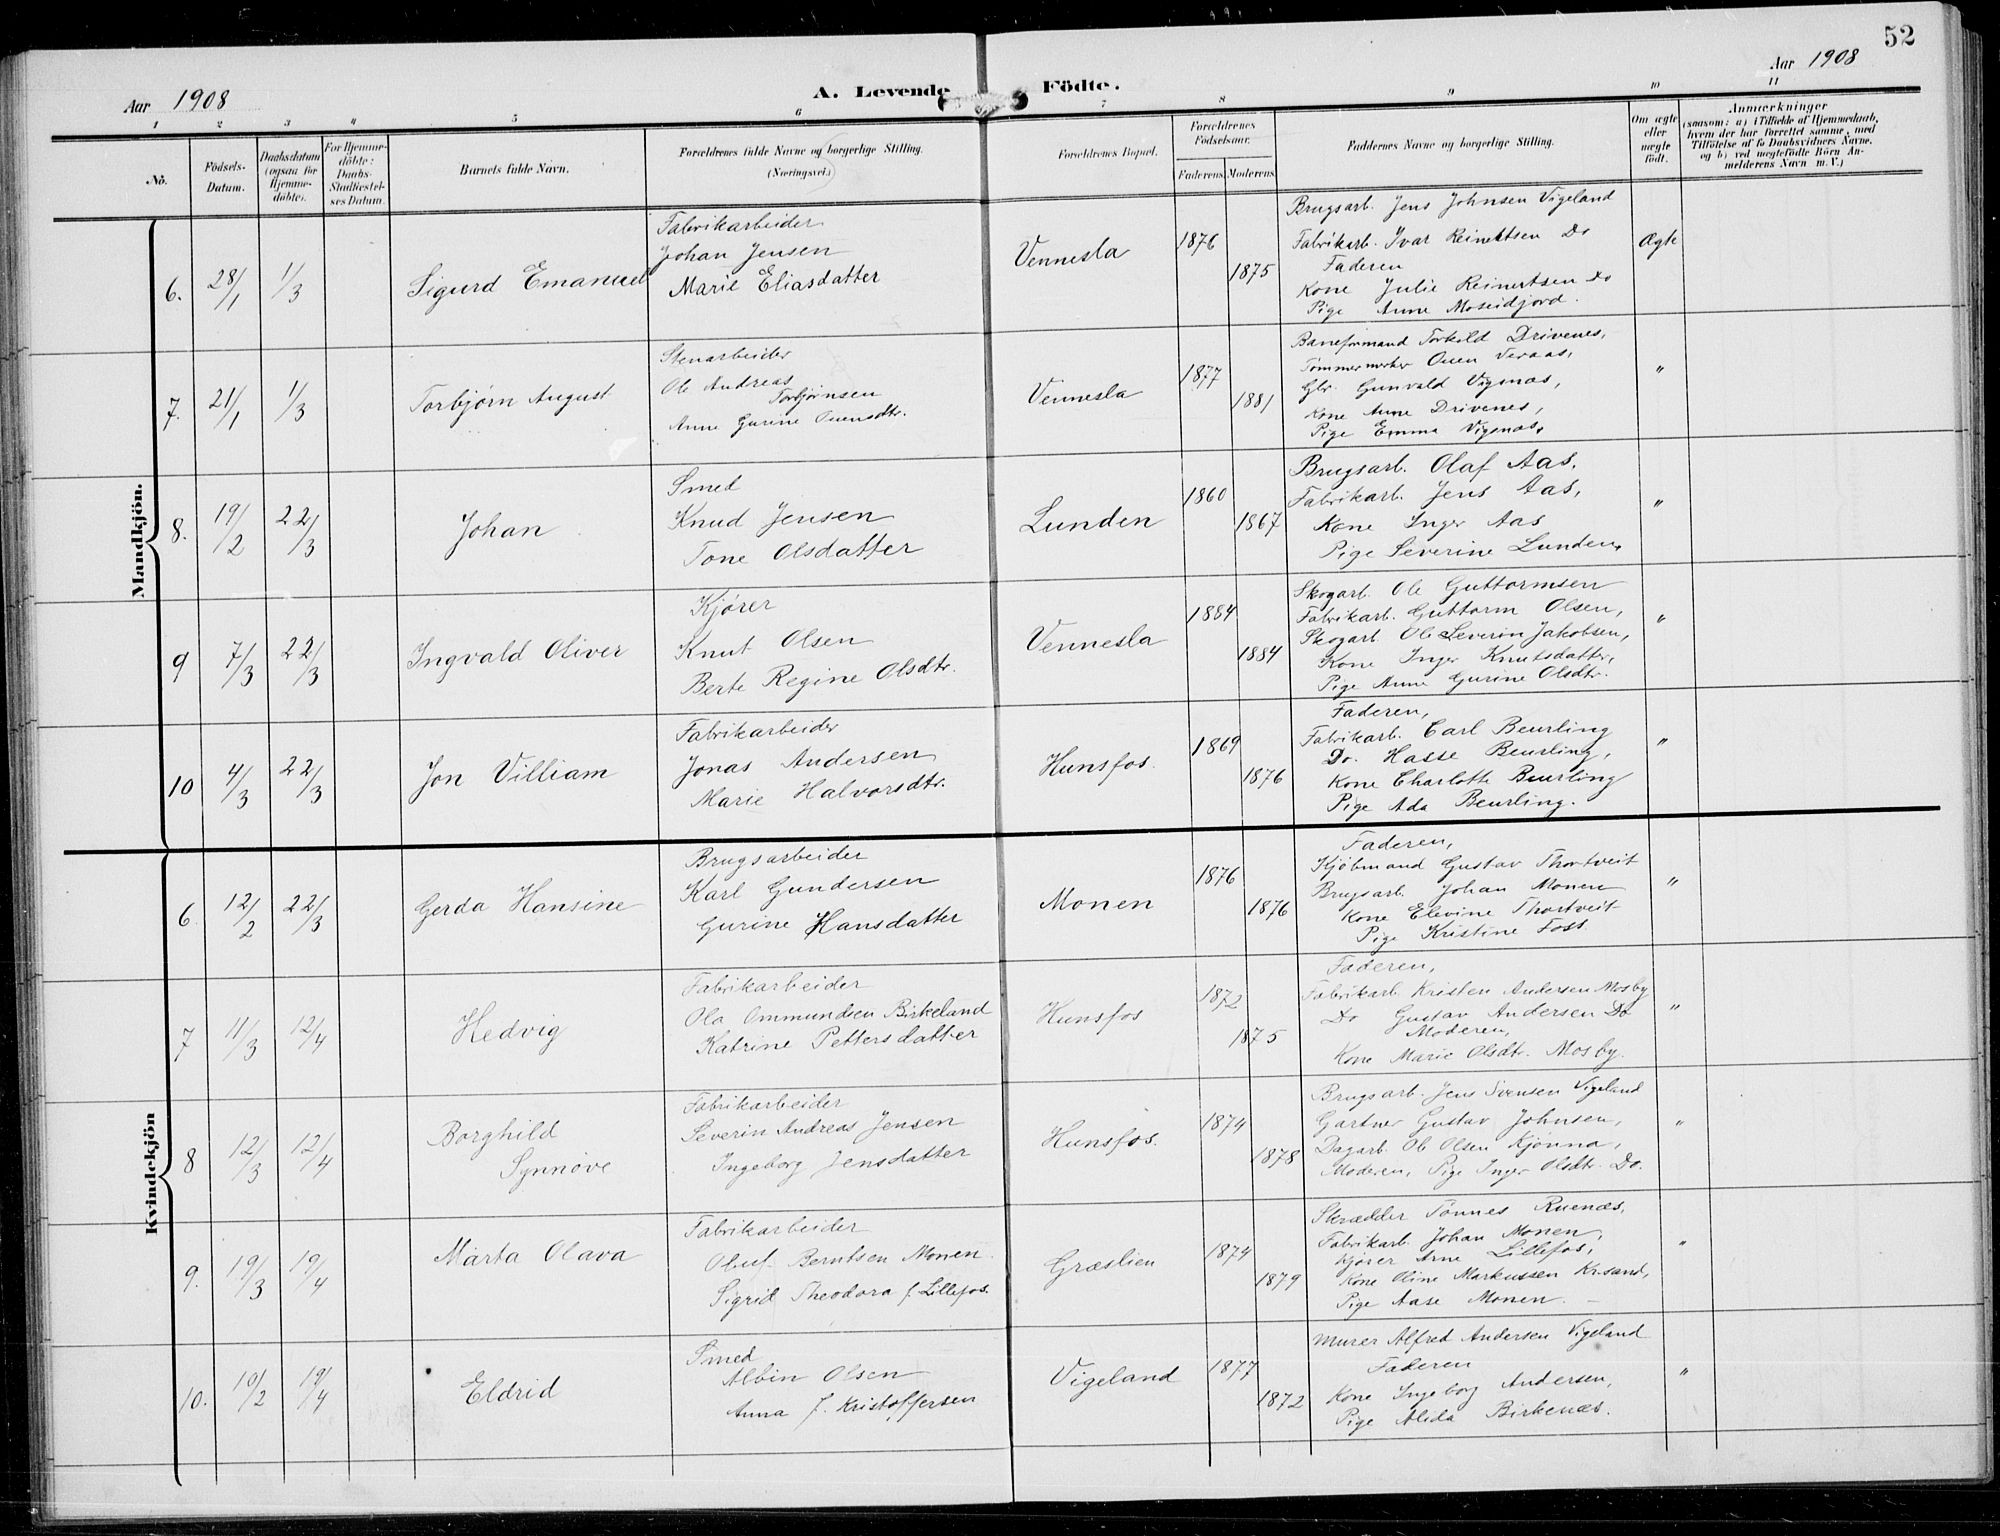 52
Aar 1908
A. Levende Födte.
Aar 1908
1 2 3 4 5 6 7 8 9 10 11
No.
Födsels-Datum.
Daabsdatum (ogsaa for Hjemme-döbte).
For Hjemme-döbte: Daabs-Stadfæstel-ses Datum.
Barnets fulde Navn.
Forældrenes fulde Navne og borgerlige Stilling.
(Næringsvei.)
Forældrenes Bopæl.
Forældrenes Födselsaar.
Faderens. Moderens.
Faddernes Navne og borgerlige Stilling.
Om ægte eller uægte födt.
Anmærkninger
(saasom: a) i Tilfælde af Hjemmedaab,
hvem der har forrettet samme, med
Tilföielse af to Daabsvidners Navne,
og b) ved uægtefödte Börn An-
melderens Navn m. V.)
Mandkjön.
6. 28/1 1/3 Sigurd Emanuel
Fabrikarbeider
Johan Jensen
Marie Eliasdatter
Vennesla 1876 1875
Brugsarb. Jens Johnsen Vigeland
Fabrikarb. Ivar Reinertsen Do
Faderen
Kone Julie Reinertsen Do
Pige Anne Moseidjord.
Ægte
7. 21/1 1/3 Torbjørn August
Stenarbeider
Ole Andreas
Torbjørnsen
Anne Gurine Ouensdtr.
Vennesla 1877 1881
Baneformand Torkild Drivenes,
Tømmermerker Ouen Veraas,
Gbr. Gunvald Vigsnæs,
Kone Anne Drivenes,
Pige Emma Vigsnæs,
"
8. 19/2 22/3 Johan
Smed
Knud Jensen
Tone Olsdatter
Lunden 1860 1867
Brugsarb. Olaf Aas,
Fabrikarb. Jens Aas,
Kone Inger Aas
Pige Severine Lunden,
"
9 7/3 22/3 Ingvald Oliver
Kjører
Knut Olsen
Berte Regine Olsdtr.
Vennesla 1884 1884
Skogarb. Ole Guttormsen
Fabrikarb. Guttorm Olsen,
Skogarb. Ole Severin Jakobsen,
Kone Inger Knutsdatter,
Pige Anne Gurine Olsdtr.
"
10 4/3 22/3 Jon Villiam
Fabrikarbeider
Jonas Andersen
Marie Halvorsdtr.
Hunsfos. 1869 1876
Faderen,
Fabrikarb. Carl Beurling
Do. Hasse Beurling,
Kone Charlotte Beurling
Pige Ada Beurling.
"
Kvindekjön
6. 12/2 22/3 Gerda Hansine
Brugsarbeider
Karl Gundersen
Gurine Hansdatter
Monen 1876 1876
Faderen,
Kjöbmand Gustav Thortveit
Brugsarb. Johan Monen
Kone Elevine Thortveit
Pige Kristine Foss
"
7 11/3 12/4 Hedvig
Fabrikarbeider
Ola Ommundsen Birkeland
Katrine Pettersdatter
Hunsfos 1872 1875
Faderen,
Fabrikarb. Kristen Andersen Mosby
Do Gustav Andersen Do
Moderen,
Kone Marie Olsdtr. Mosby.
"
8 12/3 12/4 Borghild
Synnöve
Fabrikarbeider
Severin Andreas Jensen
Ingeborg Jensdatter
Hunsfos. 1874 1878
Brugsarb. Jens Svensen Vigeland
Gartner Gustav Johnsen,
Dagarb. Ole Olsen Kjonna,
Moderen, Pige Inger Olsdtr. Do.
"
9. 19/3 19/4 Marta Olava
Fabrikarbeider
Oluf Berntsen Monen
Sigrid Theodora f. Lillefos.
Græslien 1874 1879
Skrædder Tönnes Ruenæs,
Fabrikarb. Johan Monen,
Kjører Arne Lillefos,
Kone Oline Markussen Kr.sand,
Pige Aase Monen. –
"
10. 10/2 19/4 Eldrid
Smed
Albin Olsen
Anna f. Kristoffersen
Vigeland 1877 1872
Murer Alfred Andersen Vigeland
Faderen
Kone Ingeborg Andersen,
Pige Alida Birkenæs.
"